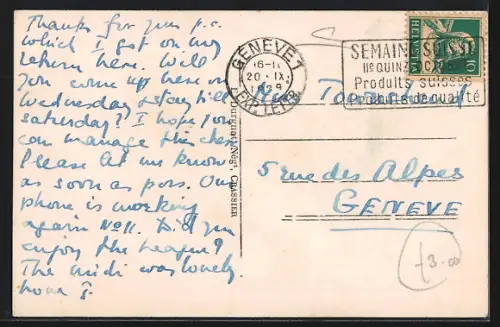 Thanks for your p.c.
which I got on my
return here. Will
you come up here on
Wednesday & stay till
Saturday? I hope you
can manage this
Please let me know
as soon as poss. Our
phone is working
again No 11. Did you
enjoy the League?
The midi was lovely
GENEVE 1
20. IX.
EXP. LETTR.
HELVETIA
10
SEMAINE SUISSE
Produits suisses
Produits de qualité
Miss
5 rue des Alpes
GENEVE
CRASSIER
£3.00